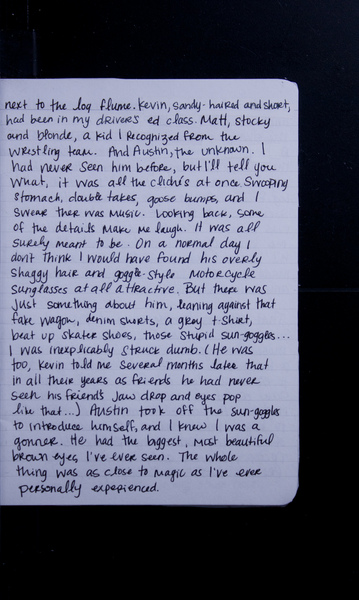 next to the log flume. Kevin, sandy-haired and short,
had been in my drivers ed class. Matt, stocky
and blonde, a kid I recognized from the
wrestling team. And Austin, the unknown. I
had never seen him before, but I'll tell you
what, it was all the clichés at once. Swooping
stomach, double takes, goose bumps, and I
swear ther was music. Looking back, some
of the details make me laugh. It was all
surely meant to be. On a normal day I
don't think I would have found his overly
shaggy hair and goggle-style motorcycle
sunglasses at all attractive. But there was
just something about him, leaning against that
fake wagon, denim shorts, a grey t-shirt,
beat up skater shoes, those stupid sun-goggles...
I was inexplicably struck dumb. (He was
too, Kevin told me several months later that
in all their years as friends he had never
seen his friend's jaw drop and eyes pop
like that...) Austin took off the sun-goggles
to introduce himself, and I knew I was a
gonner. He had the biggest, most beautiful
brown eyes I've ever seen. The whole
thing was as close to magic as I've ever
personally experienced.